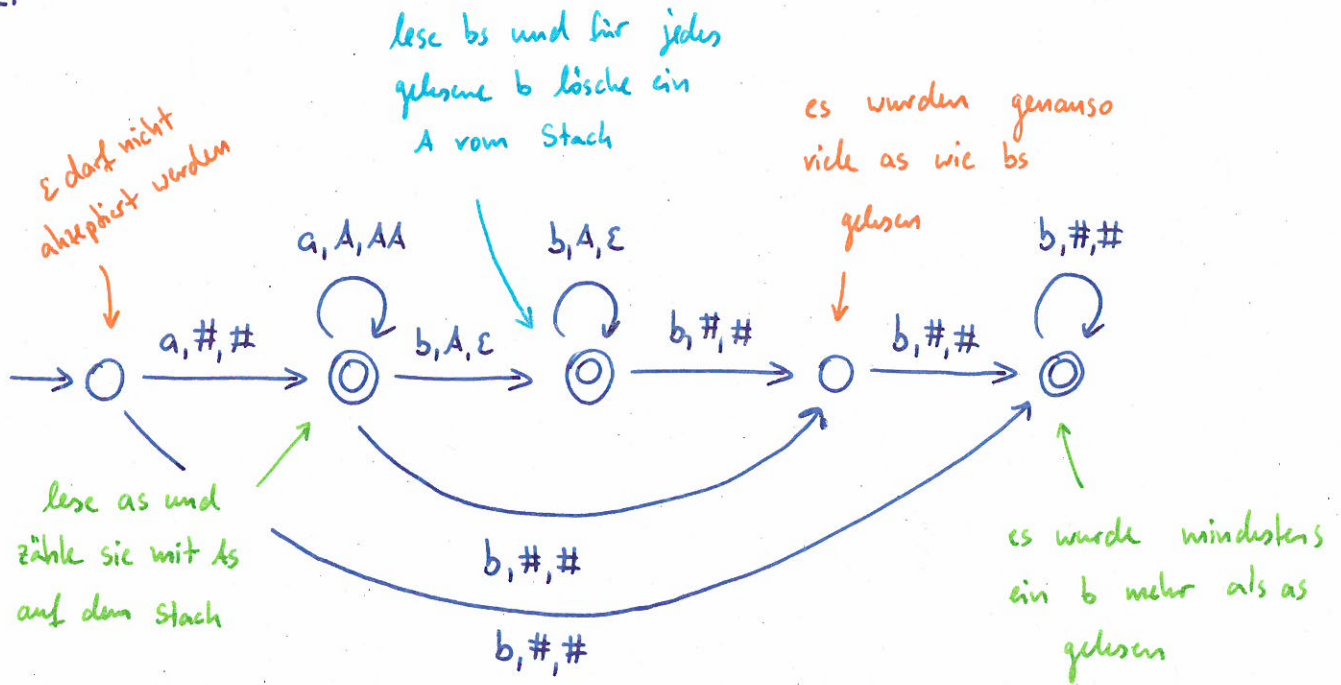 lese bs und für jedes
gelesene b lösche ein
A vom Stack
ε darf nicht
akzeptiert werden
es wurden genauso
viele as wie bs
gelesen
a, A, AA
b, A, ε
b, #, #
a, #, #
b, A, ε
b, #, #
b, #, #
lese as und
zähle sie mit As
auf dem Stack
b, #, #
b, #, #
es wurde mindestens
ein b mehr als as
gelesen